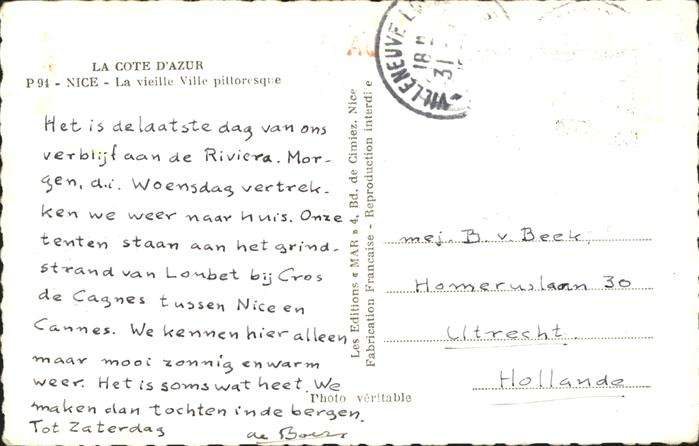 LA COTE D'AZUR
P 91 - NICE - La vieille Ville pittoresque
Het is de laatste dag van ons
verblijf aan de Riviera. Mor-
gen, d.i. Woensdag vertrek-
ken we weer naar huis. Onze
tenten staan aan het grind-
strand van Loubet bij Cros
de Cagnes tussen Nice en
Cannes. We kennen hier alleen
maar mooi zonnig en warm
weer. Het is soms wat heet. We
maken dan tochten in de bergen.
Tot Zaterdag
de Boer
Les Editions « MAR » 4, Bd. de Cimiez, Nice
Fabrication Francaise - Reproduction interdite
Photo véritable
VILLENEUVE
18
31
mej. B. v. Beek,
Homeruslaan 30
Utrecht.
Hollande